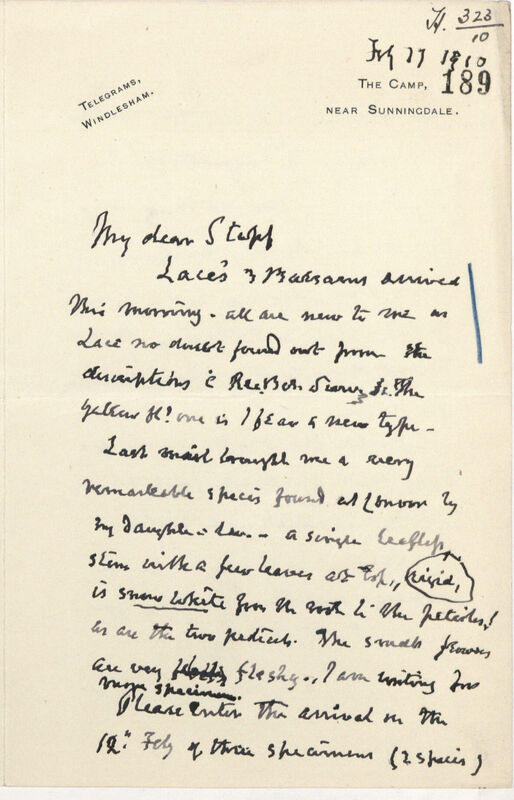 H. 323/10
Feb 17 1910
189
TELEGRAMS,
WINDLESHAM.
THE CAMP,
NEAR SUNNINGDALE.
My dear Stapf
Lace's 3 Balsams arrived
this morning - all are new to me as
Lace no doubt found out from the
descriptions in Rec. Bot. Surv. The
yellow fld. one is I fear a new type -
Last mail brought me a very
remarkable species found at Coonoor by
my Daughter-in-law - a single leafless
stem with a few leaves at top, rigid,
is snow white from the root to the petioles!
as are the two pedicels. The small flowers
are very fleshy. I am writing for
more specimens.
Please enter the arrival on the
12th Feby of three specimens (2 species)